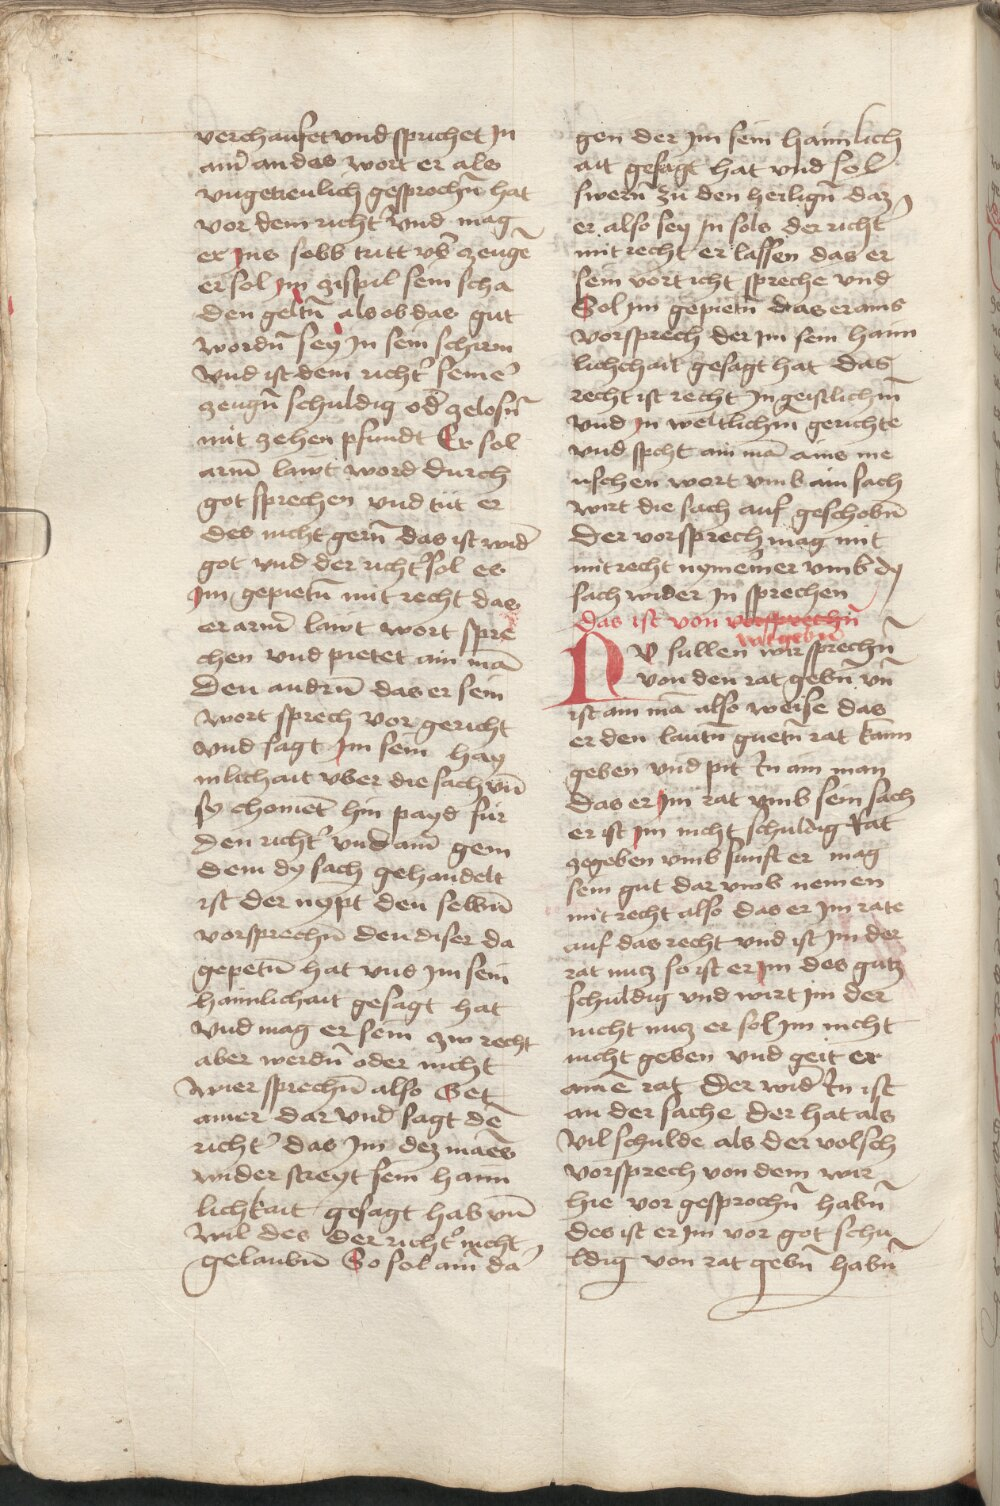 verchaufet vnd sprichet In
aim̄ an das wort er als
vngetreulich gesprochn̄ hat
vor dem richt' vnd mag
er Ins selb tritt vb' zeugē
er sol im zispil sein scha
den geltn̄ als ob das gut
wordn̄ sey In sein schirm
vnd ist dem richt' seine'
zeugn̄ schuldig od' zelosn̄
mit zehen pfundt Er sol
arm̄ lawt word durch
got sprechen vnd tut er
des nicht gern̄ das ist wid'
got vnd der richt' sol es
Im gepietn̄ mit recht das
er arm̄ lawt wort spre
chen vnd pietet ain mā
den andrn̄ das er sein
wort sprech vor gericht
vnd sagt Im sein hay
mlichait vber die sach vn̄
sy chomēt hin payd für
den richt' vnd aim̄ gem
dem dy sach gehandelt
ist der nypt den selbn̄
vorsprechn̄ den diser da
gepetn̄ hat vnd Im sein
haimlichait gesagt hat
vnd mag er sein zw recht
aber werdn̄ oder nicht
Wier sprechn̄ also Get
ainer dar vnd sagt dē
richt' das Im dez māes
wider streyt sein haim
lichkait gesagt hab vn̄
wil des der richt' nicht
gelaubn̄ So sol aim̄ da
gen der Im sein haimlich
ait gesagt hat vnd sol
swern̄ zu den heilign̄ daz
er also sey In sols der richt'
mit recht er lassen das er
sein vort icht spreche vnd
Sol im gepietn̄ das er ains
vorsprech der Im sein haim
lichchait gesagt hat das
recht ist recht In geistlichm̄
vnd In weltlichm̄ gerichte
vnd spcht ain mā ains me
nschen wort vmb ain sach
wirt die sach auf geschobn̄
der vorsprech mag mit
mit recht nymēmer vmb dy
sach wider In sprechen
das ist von vorsprechn̄
ratgebn̄
Nv sullen wir sprechn̄
von den rat gebn̄ vn̄
ist ain mā also weise das
er den lautn̄ guetn̄ rat kann
geben vnd pit In ain man
das er Im rat vmb sein sach
er ist im nicht schuldig Rat
zegeben vmb sunst er mag
sein gut dar vmb nemen
mit recht also das er Im rate
auf das recht vnd ist Im der
rat nucz so ist er Im des gutz
schuldig vnd wirt im der
nicht nucz er sol Im nicht
nicht geben vnd geit er
aimē rat der wid' In ist
an der sache der hat als
vil schulde als der volsch
vorsprech von dem wir
hie vor gesprochn̄ habn̄
des ist er Im vor got schu
ldig von rat gebn̄ habn̄